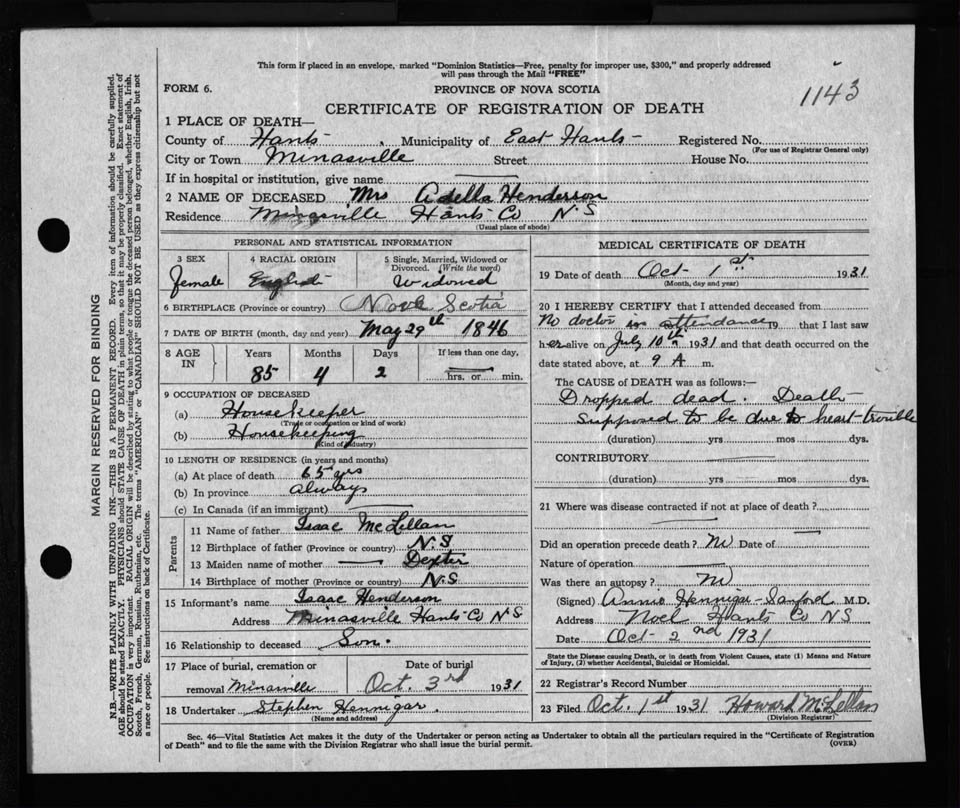 This form if placed in an envelope, marked "Dominion Statistics—Free, penalty for improper use, $300," and properly addressed
will pass through the Mail "FREE"
FORM 6.
PROVINCE OF NOVA SCOTIA
1143
CERTIFICATE OF REGISTRATION OF DEATH
1 PLACE OF DEATH—
County of Hants, Municipality of East Hants Registered No.
(For use of Registrar General only)
City or Town Minasville Street House No.
If in hospital or institution, give name
2 NAME OF DECEASED Mrs Adella Henderson
Residence Minasville Hants Co N S
(Usual place of abode)
PERSONAL AND STATISTICAL INFORMATION
3 SEX 4 RACIAL ORIGIN 5 Single, Married, Widowed or
Divorced. (Write the word)
female English Widowed
6 BIRTHPLACE (Province or country) Nova Scotia
7 DATE OF BIRTH (month, day and year) May 29th 1846
8 AGE IN Years Months Days If less than one day,
85 4 2 hrs. or min.
9 OCCUPATION OF DECEASED
(a) Housekeeper
(Trade or occupation or kind of work)
(b) Housekeeping
(Kind of industry)
10 LENGTH OF RESIDENCE (in years and months)
(a) At place of death 65 yrs
(b) In province always
(c) In Canada (if an immigrant)
Parents
11 Name of father Isaac McLellan
12 Birthplace of father (Province or country) N.S
13 Maiden name of mother — Dexter
14 Birthplace of mother (Province or country) N.S
15 Informant's name Isaac Henderson
Address Minasville Hants Co N S
16 Relationship to deceased Son.
17 Place of burial, cremation or Date of burial
removal Minasville Oct. 3rd 1931
18 Undertaker Stephen Hennigar.
(Name and address)
MEDICAL CERTIFICATE OF DEATH
19 Date of death Oct 1st 1931
(Month, day and year)
20 I HEREBY CERTIFY that I attended deceased from
No doctor in attendance 19 that I last saw
her alive on July 10th 1931 and that death occurred on the
date stated above, at 9 A m.
The CAUSE OF DEATH was as follows:—
Dropped dead. Death
supposed to be due to heart trouble
(duration) yrs mos dys.
CONTRIBUTORY
(duration) yrs mos dys.
21 Where was disease contracted if not at place of death?
Did an operation precede death? No Date of
Nature of operation
Was there an autopsy? No
(Signed) Annie Hennigar-Sanford M.D.
Address Noel Hants Co N S
Date Oct 2nd 1931
State the Disease causing Death, or in death from Violent Causes, state (1) Means and Nature
of Injury, (2) whether Accidental, Suicidal or Homicidal.
22 Registrar's Record Number
23 Filed Oct. 1st 1931 Howard McLellan
(Division Registrar)
Sec. 46—Vital Statistics Act makes it the duty of the Undertaker or person acting as Undertaker to obtain all the particulars required in the "Certificate of Registration
of Death" and to file the same with the Division Registrar who shall issue the burial permit.
(OVER)
MARGIN RESERVED FOR BINDING
N.B.—WRITE PLAINLY WITH UNFADING INK—THIS IS A PERMANENT RECORD. Every item of information should be carefully supplied.
AGE should be stated EXACTLY. PHYSICIANS should STATE CAUSE OF DEATH in plain terms, so that it may be properly classified. Exact statement of
OCCUPATION is very important. RACIAL ORIGIN will be described by stating to what people or tongue the deceased person belonged, whether English, Irish,
Scotch, French, German, Russian, Ruthenian, etc. The terms "AMERICAN" or "CANADIAN" SHOULD NOT BE USED as they express citizenship but not
a race or people. See instructions on back of Certificate.